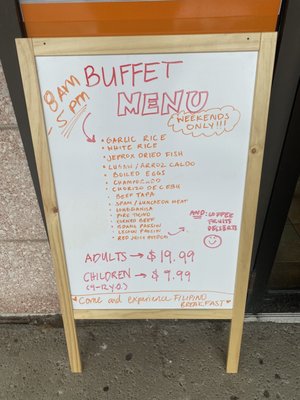 8AM - 5PM
BUFFET
MENU
WEEKENDS
ONLY!!!
• GARLIC RICE
• WHITE RICE
• JEPROX DRIED FISH
• LUGAW/ARROZ CALDO
• BOILED EGGS
• CHAMPORADO
• CHORIZO DE CEBU
• BEEF TAPA
• SPAM/LUNCHEON MEAT
• LONGGANISA
• CORNED BEEF
AND: COFFEE
FRUITS
DESSERTS
ADULTS → $19.99
CHILDREN → $9.99
(4-8 Y.O.)
Come and experience FILIPINO
BREAKFAST